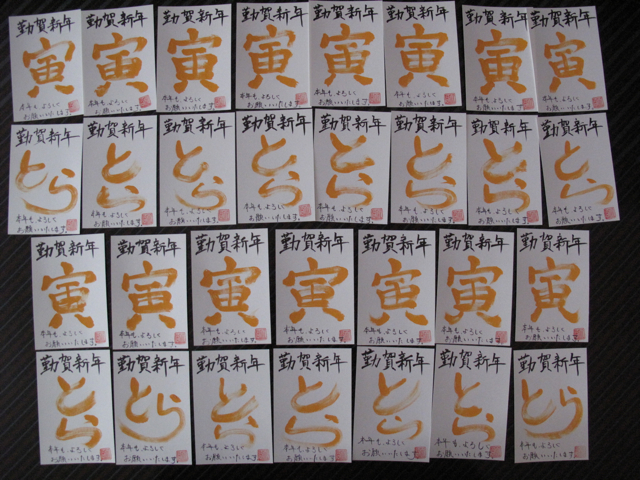 勤賀新年
寅
本年もよろしく
お願いいたします。
勤賀新年
寅
本年もよろしく
お願いいたします。
勤賀新年
寅
本年もよろしく
お願いいたします。
勤賀新年
寅
本年もよろしく
お願いいたします。
勤賀新年
寅
本年もよろしく
お願いいたします。
勤賀新年
寅
本年もよろしく
お願いいたします。
勤賀新年
寅
本年もよろしく
お願いいたします。
勤賀新年
寅
本年もよろしく
お願いいたします。
勤賀新年
とら
本年もよろしく
お願いいたします。
勤賀新年
とら
本年もよろしく
お願いいたします。
勤賀新年
とら
本年もよろしく
お願いいたします。
勤賀新年
とら
本年もよろしく
お願いいたします。
勤賀新年
とら
本年もよろしく
お願いいたします。
勤賀新年
とら
本年もよろしく
お願いいたします。
勤賀新年
とら
本年もよろしく
お願いいたします。
勤賀新年
とら
本年もよろしく
お願いいたします。
勤賀新年
寅
本年もよろしく
お願いいたします。
勤賀新年
寅
本年もよろしく
お願いいたします。
勤賀新年
寅
本年もよろしく
お願いいたします。
勤賀新年
寅
本年もよろしく
お願いいたします。
勤賀新年
寅
本年もよろしく
お願いいたします。
勤賀新年
寅
本年もよろしく
お願いいたします。
勤賀新年
寅
本年もよろしく
お願いいたします。
勤賀新年
とら
本年もよろしく
お願いいたします。
勤賀新年
とら
本年もよろしく
お願いいたします。
勤賀新年
とら
本年もよろしく
お願いいたします。
勤賀新年
とら
本年もよろしく
お願いいたします。
勤賀新年
とら
本年もよろしく
お願いいたします。
勤賀新年
とら
本年もよろしく
お願いいたします。
勤賀新年
とら
本年もよろしく
お願いいたします。